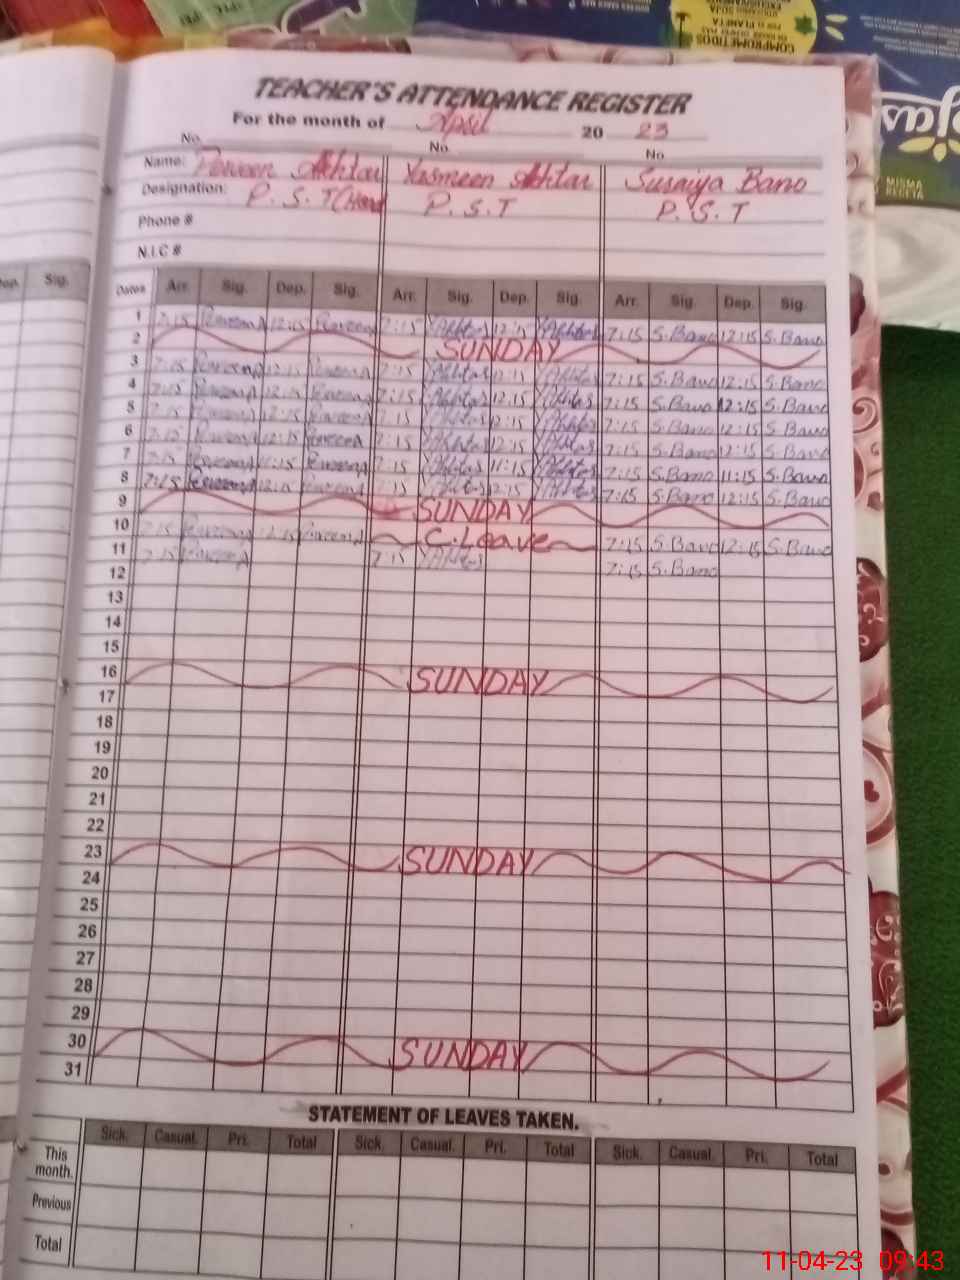 COMPROMETIDOS
POR EL PLANETA
MISMA
RECETA
TEACHER'S ATTENDANCE REGISTER
For the month of April 20 23
No. No. No.
Name: Perveen Akhtar Yasmeen Akhtar Suraiya Bano
Designation: P.S.T(Head P.S.T P.S.T
Phone #
N.I.C #
Sig.
Dates Arr. Sig. Dep. Sig. Arr. Sig. Dep. Sig. Arr. Sig. Dep. Sig.
1 7:15 PerveenA 12:15 PerveenA 7:15 YAkhtar 12:15 YAkhtar 7:15 S.Bano 12:15 S.Bano
2 SUNDAY
3 7:15 PerveenA 12:15 PerveenA 7:15 YAkhtar 12:15 YAkhtar 7:15 S.Bano 12:15 S.Bano
4 7:15 PerveenA 12:15 PerveenA 7:15 YAkhtar 12:15 YAkhtar 7:15 S.Bano 12:15 S.Bano
5 7:15 PerveenA 12:15 PerveenA 7:15 YAkhtar 12:15 YAkhtar 7:15 S.Bano 12:15 S.Bano
6 7:15 PerveenA 12:15 PerveenA 7:15 YAkhtar 12:15 YAkhtar 7:15 S.Bano 12:15 S.Bano
7 7:15 PerveenA 11:15 PerveenA 7:15 YAkhtar 11:15 YAkhtar 7:15 S.Bano 11:15 S.Bano
8 7:15 PerveenA 12:15 PerveenA 7:15 YAkhtar 12:15 YAkhtar 7:15 S.Bano 12:15 S.Bano
9 SUNDAY
10 7:15 PerveenA 12:15 PerveenA C.Leave 7:15 S.Bano 12:15 S.Bano
11 7:15 PerveenA 7:15 YAkhtar 7:15 S.Bano
12
13
14
15
16 SUNDAY
17
18
19
20
21
22
23 SUNDAY
24
25
26
27
28
29
30 SUNDAY
31
STATEMENT OF LEAVES TAKEN.
Sick. Casual. Pri. Total Sick. Casual. Pri. Total Sick. Casual. Pri. Total
This
month.
Previous
Total
11-04-23 09:43